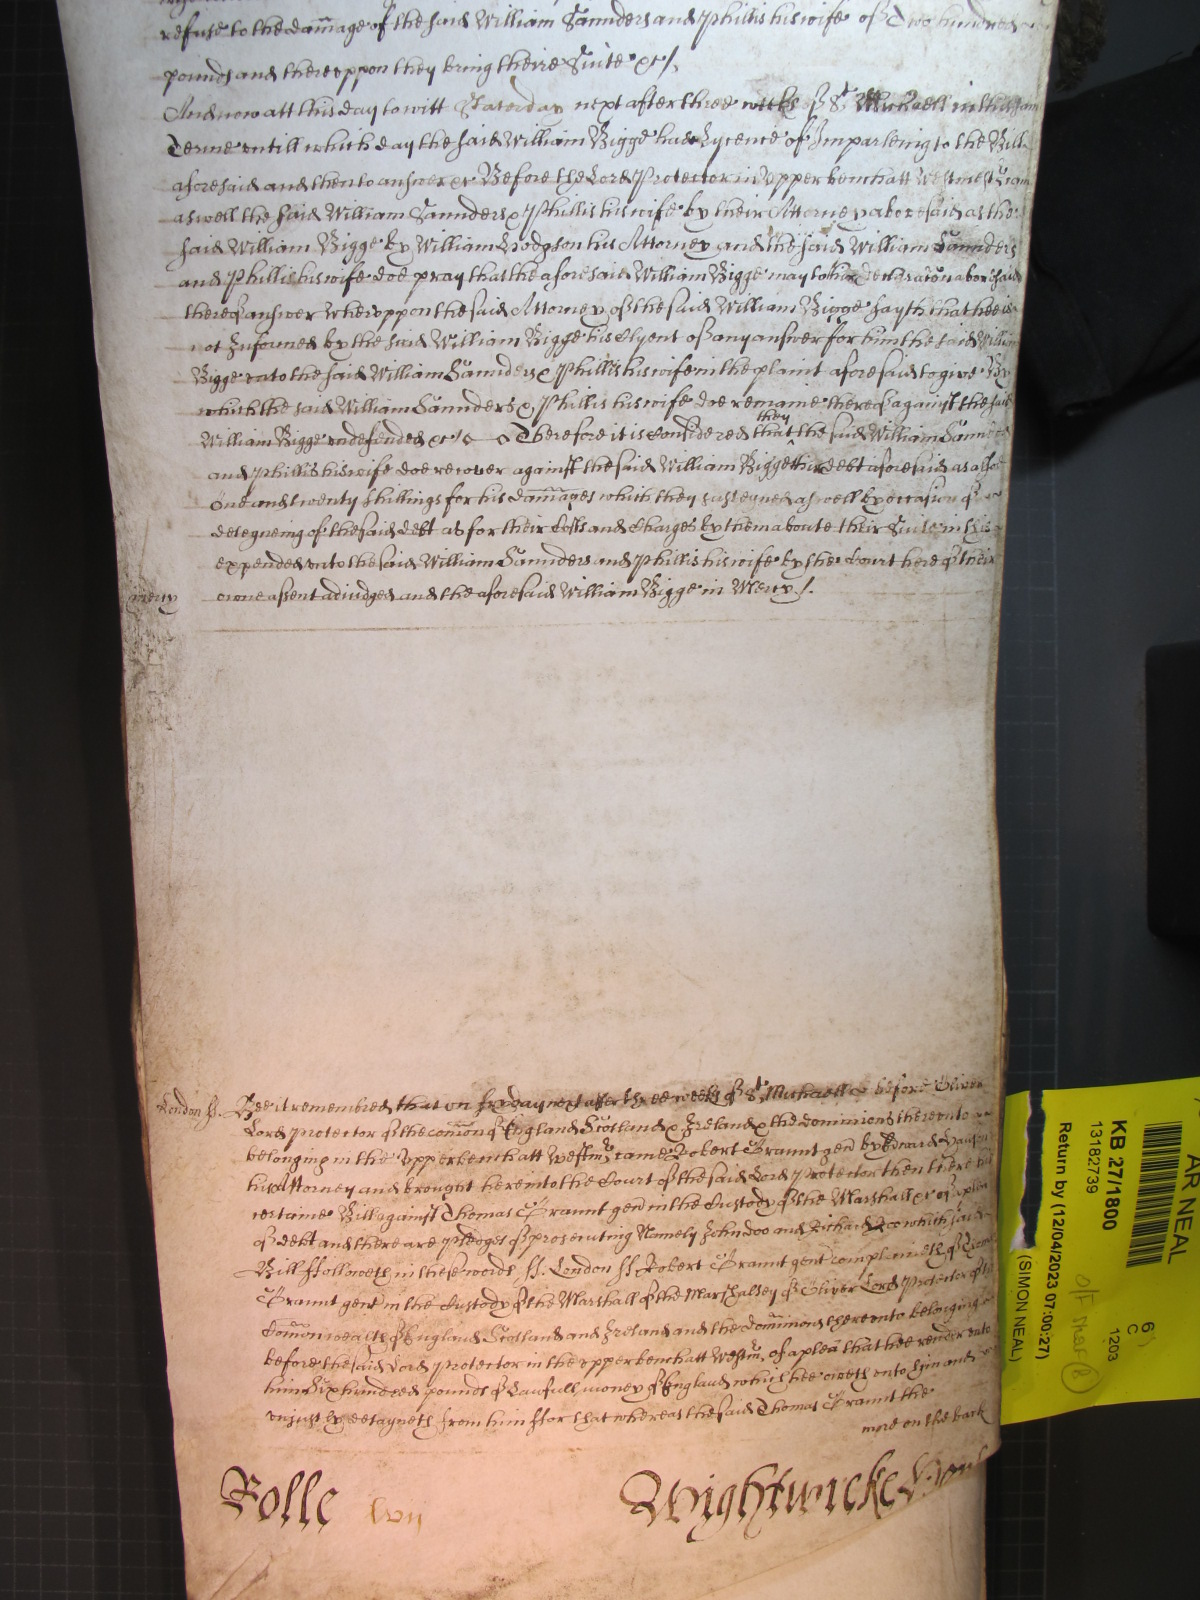 refuse to the dam̄age of the said William Saunders and Phillis his wife of Two hundred
pounds and thereuppon they bring theire Suite &c/.
And now att this day to witt Saterday next after three weekes of St Michaell in this same
Terme untill which day the said William Bigge had Lycence of Imparleing to the Bill
aforesaid and then to answer &c Before the Lord Protector in Upper bench att Westm̄ Came
aswell the said William Saunders & Phillis his wife by their Attorney abovesaid as the
said William Bigge by William Hodgson his Attorney and the said William Saunders
and Phillis his wife doe pray that the aforesaid William Bigge may to their declaration abovesaid
thereof answer Whereuppon the said Attorney of the said William Bigge sayth that hee is
not Informed by the said William Bigge his Clyent of any answer for him the said William
Bigge unto the said William Saunders & Phillis his wife in the plaint aforesaid to give By
which the said William Saunders & Phillis his wife doe remaine thereof against the said
William Bigge undefended &c Therefore it is Considered that they the said William Saunders
and Phillis his wife doe recover against the said William Bigge their debt aforesaid as alsoe
one and twenty shillings for his dam̄ages which they susteyned aswell by occasion of
deteyneing of the said debt as for their Costs and Charges by them aboute their Suite in this
expended unto the said William Saunders and Phillis his wife by the Court here of their
mercy
owne assent adiudged and the aforesaid William Bigge in Mercy /.
London ss.
Bee it remembred that on Fryday next after three weekes of St Michaell & before Oliver
Lord Protector of the Com̄on of England Scotland & Ireland & the dominions thereunto
belonging in the Upper bench att Westm̄ came Robert Brannt gen̄ by Edward
his Attorney and brought here into the Court of the said Lord Protector then there his
certaine Bill against Thomas Brannt gen̄ in the Custody of the Marshall &c of a plea
of debt and there are pledges of prosecuting Namely John doo and Richard Roo which said
Bill ffolloweth in these words ss. London ss Robert Brannt gent complaineth of Thomas
Brannt gent in the Custody of the Marshall of the Marshalsey of Oliver Lord Protector of the
Com̄onwealth of England Scotland and Ireland and the dominions thereunto belonging
before the said Lord Protector in the upper bench att Westm̄, of a plea that hee render unto
him Six hundred pounds of Lawfull money of England which hee oweth unto him and
unjustly detayneth from him ffor that whereas the said Thomas Brannt the
more on the back
Rolle
lvii
Wightwicke
AR NEAL
KB 27/1800
13182739
Return by (12/04/2023 07:00:27)
(SIMON NEAL)
6
C
1203